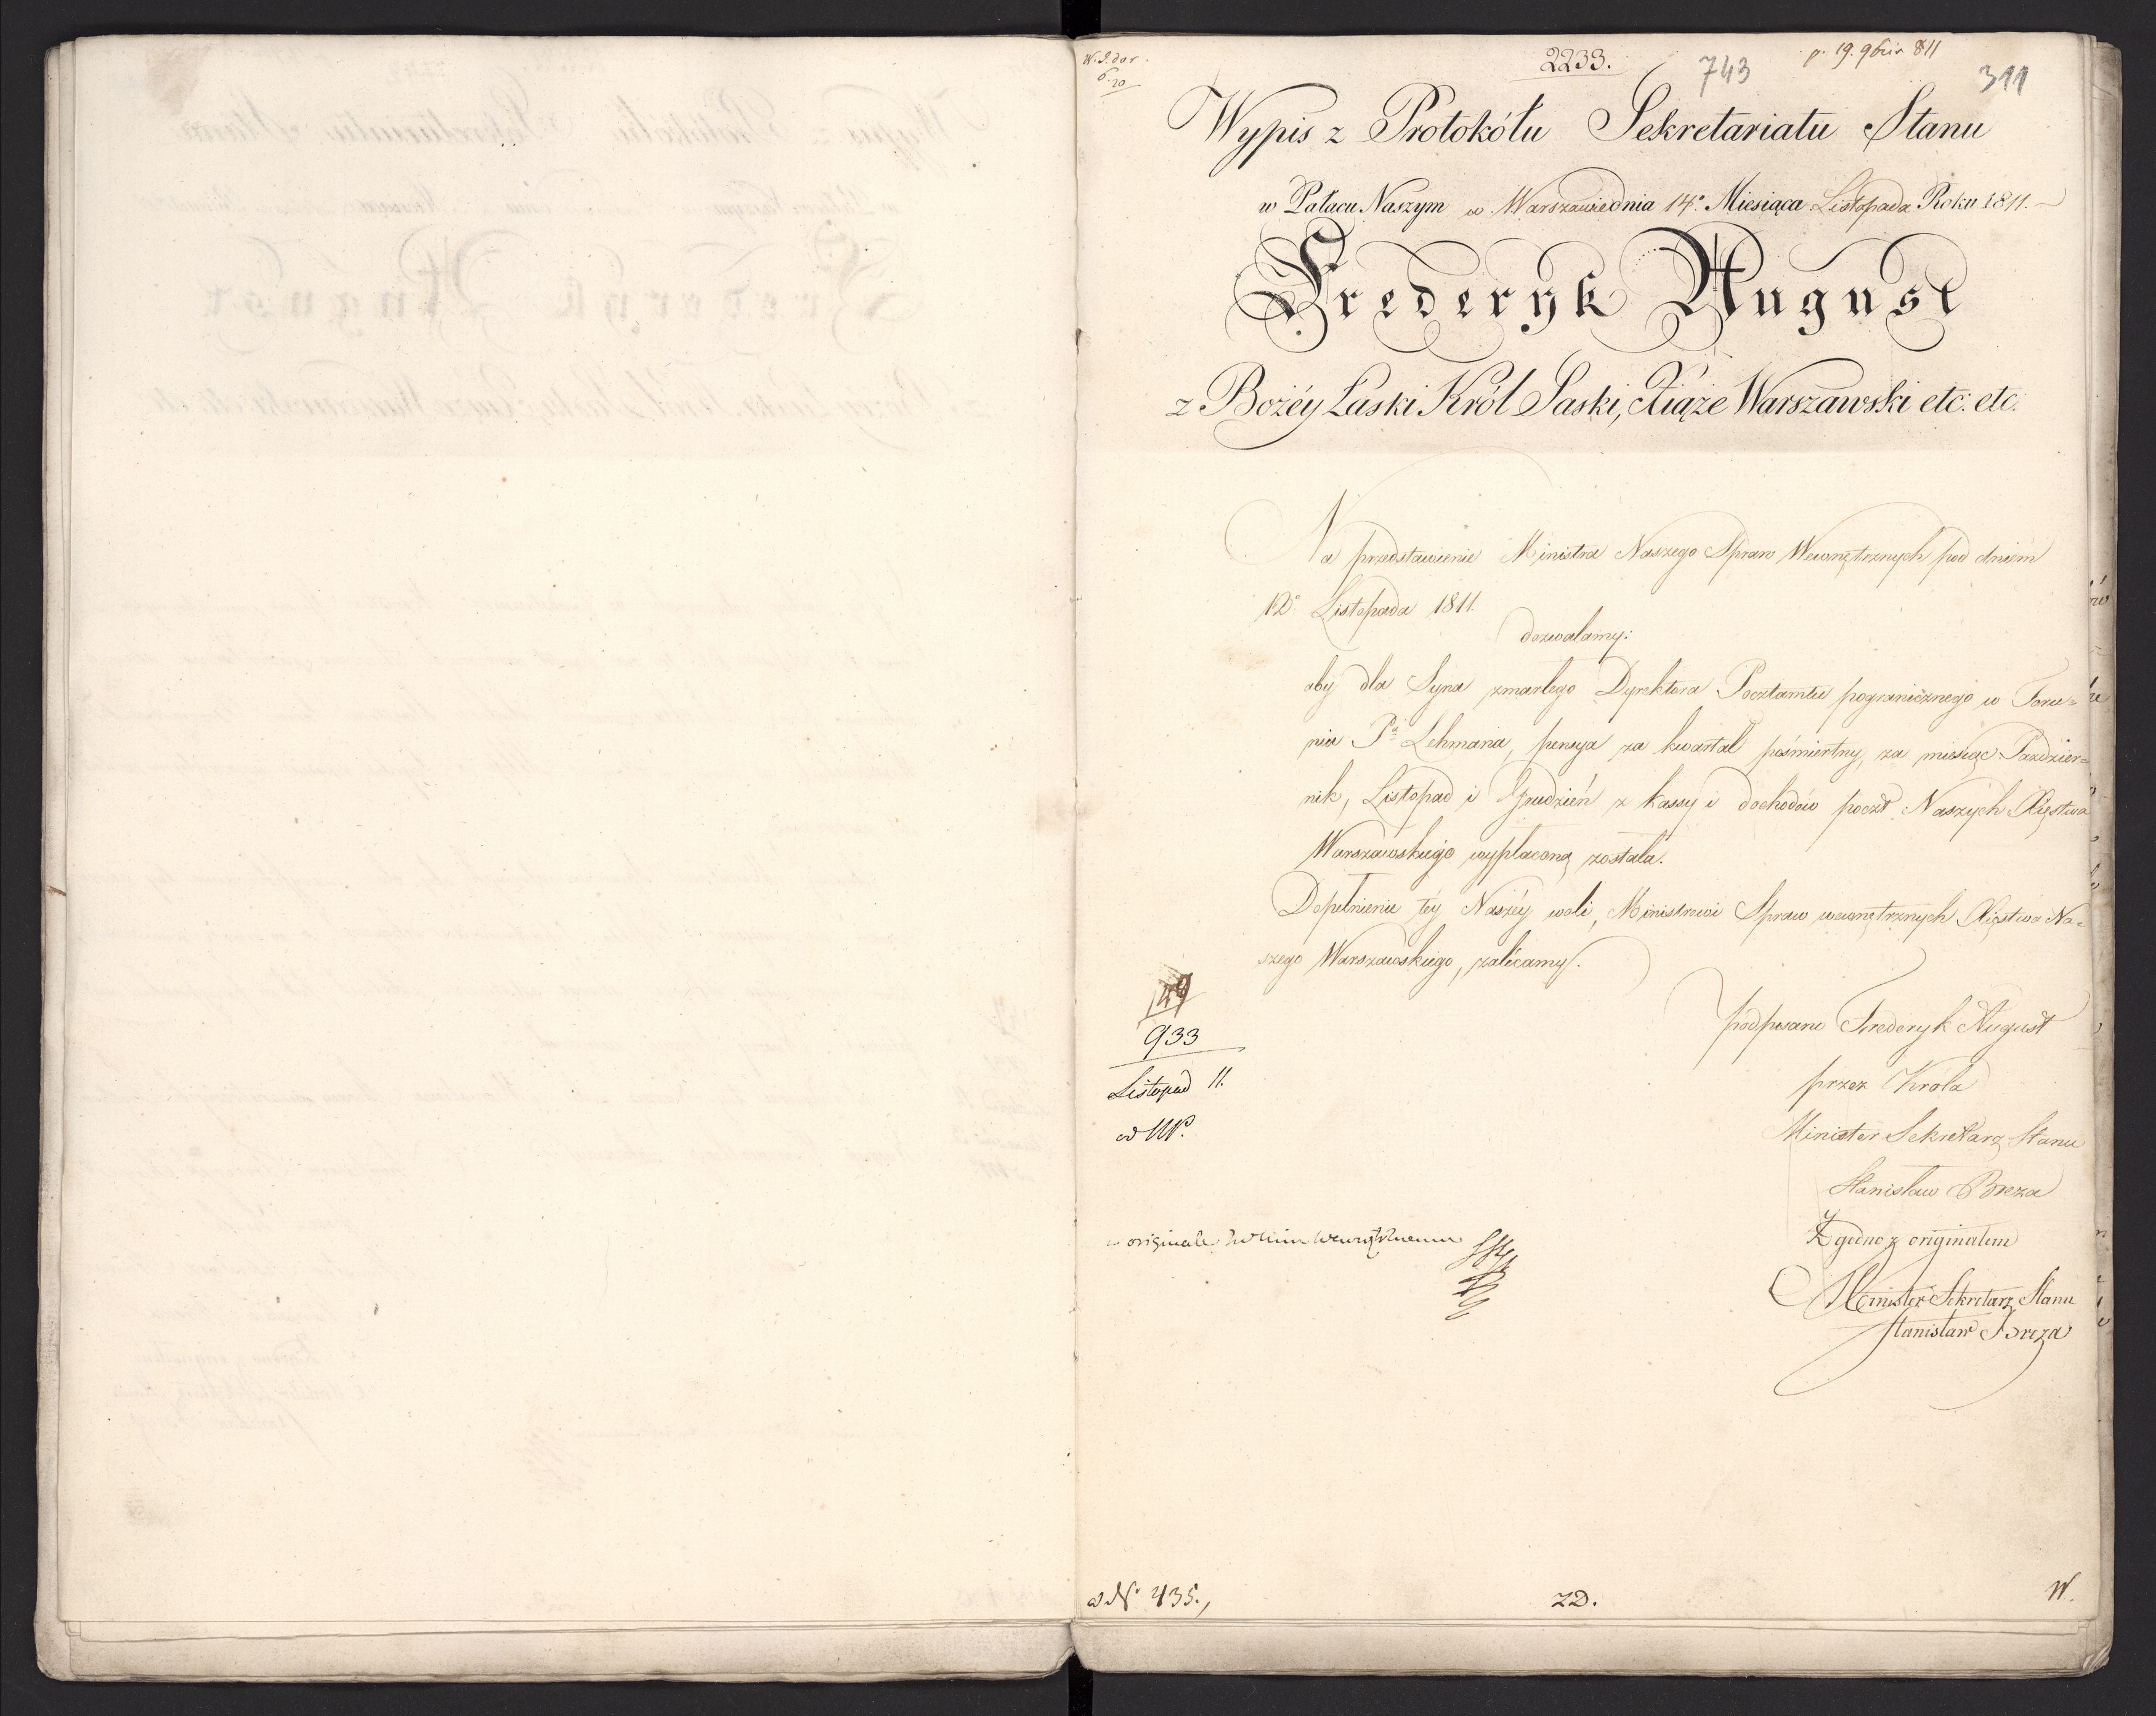 2233.
743
p. 19. 9bris 811
311
Wypis z Protokółu Sekretariatu Stanu
w Pałacu Naszym w Warszawie dnia 14º Miesiąca Listopada Roku 1811.
Frederyk August
z Bożéy Łaski Król Saski, Xiąże Warszawski etc. etc.
Na przedstawienie Ministra Naszego Spraw Wewnętrznych pod dniem
12º Listopada 1811.
dozwalamy:
aby dla Syna zmarłego Dyrektora Pocztamtu pogranicznego w Toru=
niu Pª Lehmana, pensya za kwartał pośmiertny, za miesiąc Pazdzier=
nik, Listopad i Grudzień z kassy i dochodów poczt Naszych Xięstwa
Warszawskiego wypłaconą została.
Dopełnienie téy Naszéy woli, Ministrowi Spraw wewnętrznych Xięstwa Na=
szego Warszawskiego, zalécamy.
podpisano Frederyk August
przez Króla
Minister Sekretarz Stanu
Stanisław Breza
Zgodno z originałem
Minister Sekretarz Stanu
Stanisław Breza
49
933
Listopad 11.
originale
ad Nº 435.,
ZD.
W.